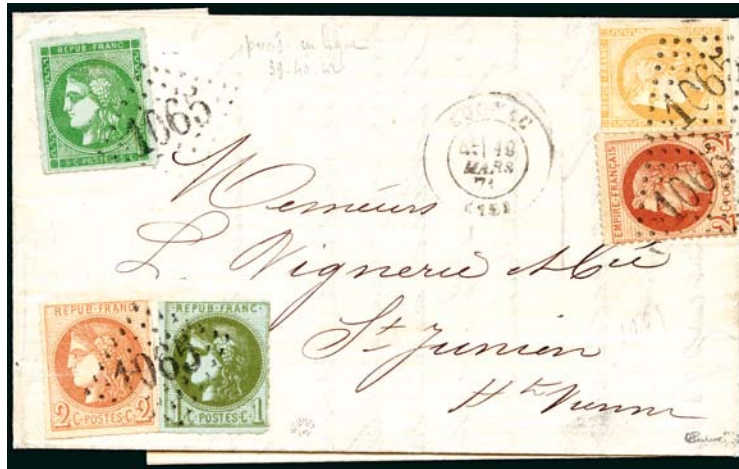 REPUB·FRANC
5·C·POSTES·5·C
1065
percés en ligne
39-40-42
COGNAC
19
MARS
71
(15)
1065
EMPIRE FRANÇAIS
1065
Messieurs
L Vignerie & Cie
St Junien
Hte Vienne
REPUB·FRANC·
2C·POSTES·C2
REPUB·FRANC·
1C·POSTES·C·1
1065